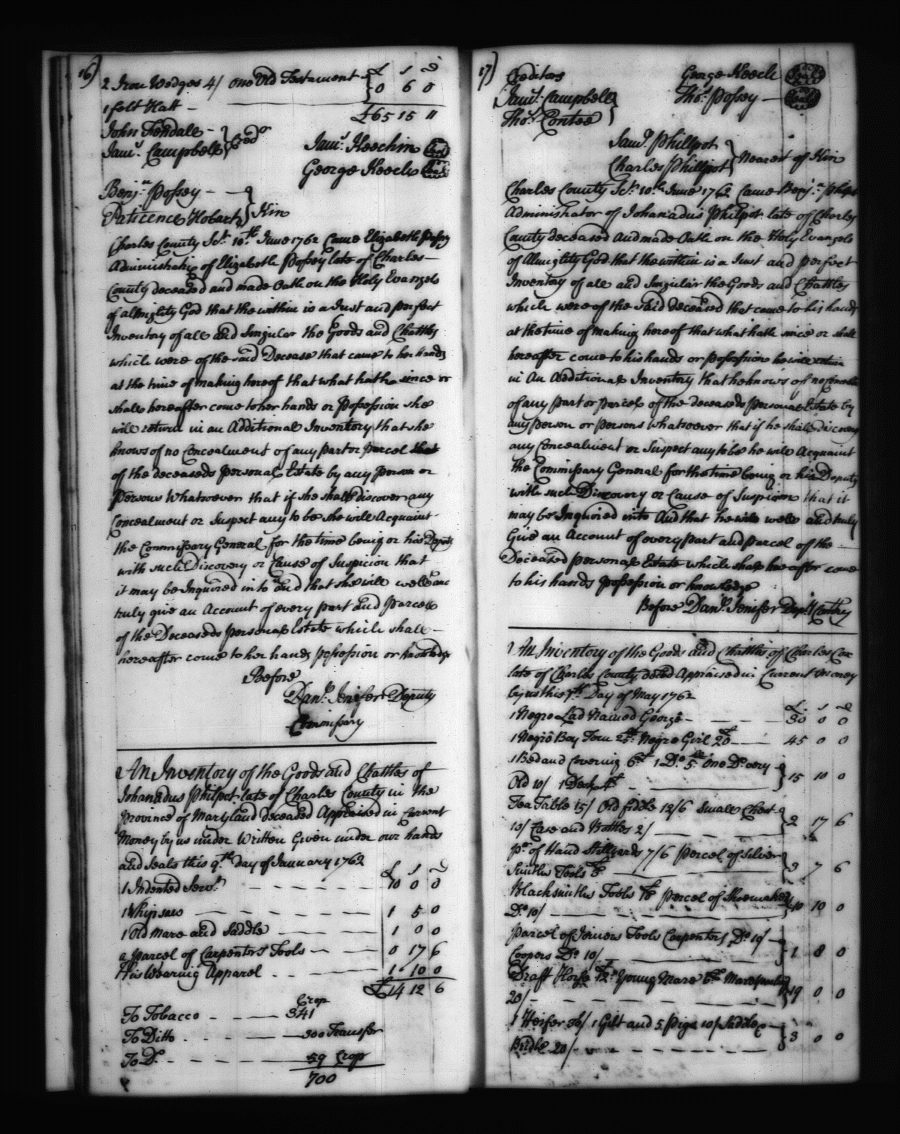 16)
£ s d
2 Iron Wedges 4/ one Old Testament
1 felt Hatt — } 0 6 0
£65 15 11
John Tendale —
Saml. Campbell } Credrs
Jams. Keechin Seal
George Keech Seal
Benjn. Possey —
Patience Hobart } Kin
Charles County Sct. 10th. June 1762 Came Elizabeth Possey
Administratrix of Elizabeth Possey late of Charles
County deceased and made Oath on the Holy Evangels
of allmighty God that the within is a Just and perfect
Inventory of all and Singular the Goods and Chattles
which were of the said Decease that came to her hands
at the time of making hereof that what hath since or
shall hereafter come to her hands or Possession she
will return in an Additional Inventory that she
knows of no Concealment of any part or parcel
of the deceaseds personal Estate by any person or
Persons Whatsoever that if she shall discover any
Concealment or Suspect any to be she will Acquaint
the Commissary General for the time being or his Deputy
with such Discovery or Cause of Suspicion that
it may be Inquired into and that she will well and
truly give an Account of every part and parcel
of the Deceaseds personal Estate which shall
hereafter come to her hands possession or knowledge
Before
Danl. Jenifer Deputy
Commissary
An Inventory of the Goods and Chattles of
Johanadus Philpot late of Charles County in the
Province of Maryland deceased Appraised in Current
Money by us under Written Given under our hands
and Seals this 9th. Day of January 1762
£ s d
1 Indented Servt. — 10 0 0
1 Whip saw — 1 5 0
1 Old Mare and Saddle — 1 0 0
a parcel of Carpenters Tools — 0 17 6
His Wearing Apparel — 1 10 0
£14 12 6
Crop
To Tobacco — 341
To Ditto — 300 Transfer
To Do. — 59 Crop
700
17)
Creditors
George Keech Seal
Saml. Campbell
Thos. Contee }
Thos. Possey — Seal
Saml. Phillpot
Charles Phillpot } Nearest of Kin
Charles County Sct. 10th. June 1762 Came Benjn. Philpot
Administrator of Johanadus Philpot late of Charles
County deceased and made Oath on the Holy Evangels
of Almighty God that the within is a Just and perfect
Inventory of all and Singular the Goods and Chattles
which were of the said deceased that came to his hands
at the time of making hereof that what hath since or shall
hereafter come to his hands or possession he will return
in An Additional Inventory that he knows of no
of any part or parcel of the deceaseds personal Estate by
any person or persons whatsoever that if he shall discover
any Concealment or Suspect any to be he will Acquaint
the Commissary General for the time being or his Deputy
with such Discovery or Cause of Suspicion that it
may be Inquired into And that he will well and truly
Give an Account of every part and parcel of the
Deceased personal Estate which shall hereafter come
to his hands possession or knowledge
Before Danl. Jenifer Depty
An Inventory of the Goods and Chattles of Charles
late of Charles County deced Appraised in Current Money
by us this 7th. Day of May 1762
£ s d
1 Negro Lad Named George — 50 0 0
1 Negro Boy 25£ Negro Girl 20£ — 45 0 0
1 Bed and Covering 6£ 1 Do. 5£ One Do. very
Old 10/ 1 Desk 4£ } 15 10 0
Tea Table 15/ Old fiddle 12/6 Small Chest
10/ Case and Bottles 2/ } 2 17 6
pr. of Hand Stillyards 7/6 Percel of Silver
Smiths Tools } 3 7 6
Blacksmiths Tools Percel of Shoemakers
Do. 10/ } 10 10 0
parcel of Joiners Tools Carpenters Do. 10/
Coopers Do. 10/ } 1 8 0
Draft Horse Young Mare 6£ Mare
20/ — } 19 0 0
1 Heifer 1 Gilt and 5 Pigs 10/ Saddle
Bridle 20/ — } 3 0 0